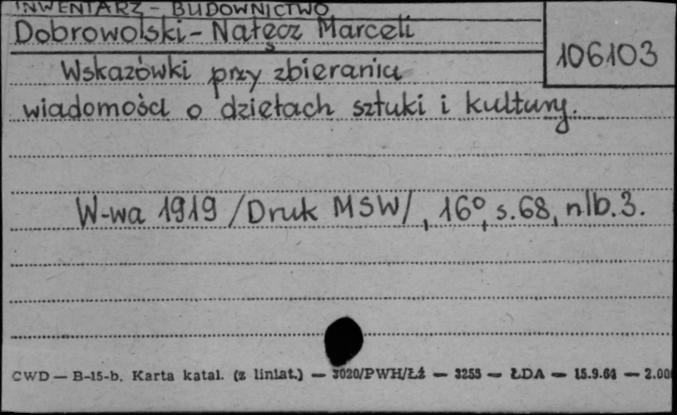 INWENTARZ - BUDOWNICTWO
Dobrowolski - Nałęcz Marceli
106103
Wskazówki przy zbieraniu
wiadomości o dziełach sztuki i kultury.
W-wa 1919 /Druk MSW/, 16°, s. 68, nlb. 3.
CWD — B-15-b. Karta katal. (z liniat.) — 3020/PWH/Łż — 3255 — ŁDA — 15.9.64 — 2.00